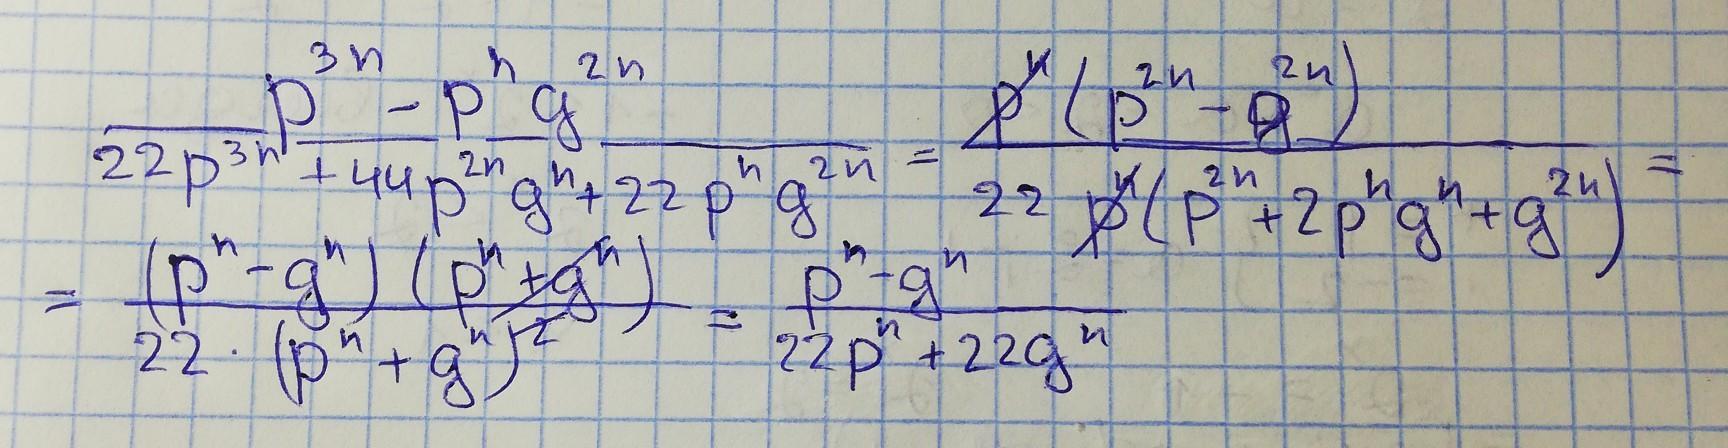 p^{3n} - p^n g^{2n} / 22p^{3n} + 44p^{2n} g^n + 22p^n g^{2n} = p^n (p^{2n} - g^{2n}) / 22 p^n (p^{2n} + 2p^n g^n + g^{2n}) =
= (p^n - g^n) (p^n + g^n) / 22 · (p^n + g^n)^2 = p^n - g^n / 22p^n + 22g^n